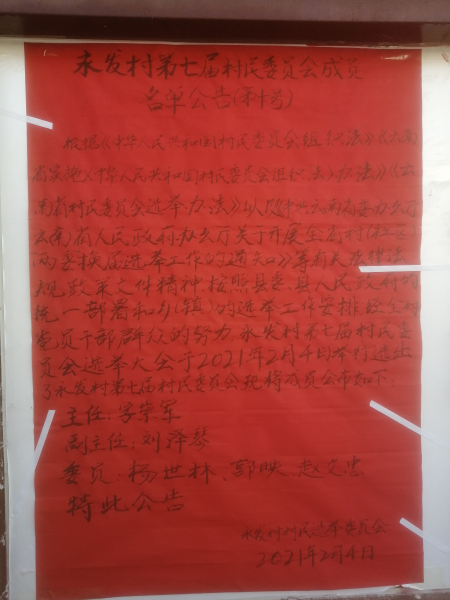 永发村第七届村民委员会成员
名单公告(第十号)
根据《中华人民共和国村民委员会组织法》《云南
省实施〈中华人民共和国村民委员会组织法〉办法》《云
南省村民委员会选举办法》以及中共云南省委办公厅
云南省人民政府办公厅关于开展全省村(社区)
两委换届选举工作的通知》等有关法律法
规政策文件精神按照县委、县人民政府的
统一部署和乡(镇)的选举工作安排经全村
党员干部群众的努力永发村第七届村民委
员会选举大会于2021年2月4日举行选出
了永发村第七届村民委员会现将成员公布如下:
主任:字荣军
副主任:刘泽琴
委员:杨世林、郭映、赵文忠
特此公告
永发村村民选举委员会
2021年2月4日